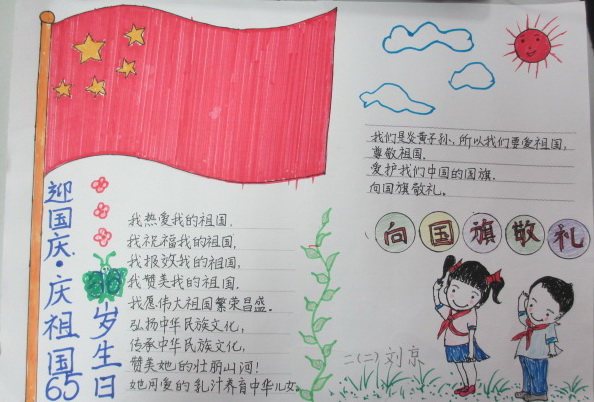 迎国庆·庆祖国65
岁生日
我热爱我的祖国,
我祝福我的祖国,
我报效我的祖国,
我赞美我的祖国,
我愿伟大祖国繁荣昌盛.
弘扬中华民族文化,
传承中华民族文化,
赞美她的壮丽山河!
她可爱的乳汁养育中华儿女.
我们是炎黄子孙,所以我们要爱祖国,
尊敬祖国.
爱护我们中国的国旗.
向国旗敬礼。
向国旗敬礼
二(二)刘京